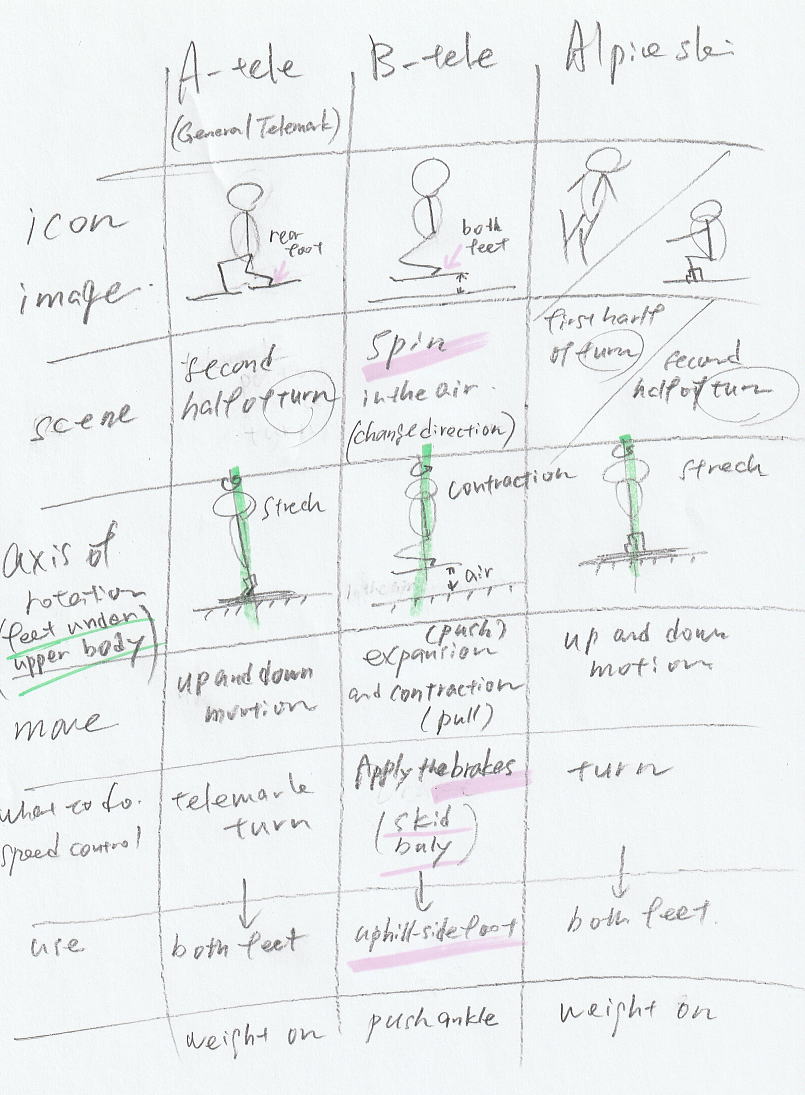 A-tele
(General Telemark)
B-tele
Alpine ski
icon
image.
rear
foot
both
feet
scene
second
half of turn
Spin
in the air.
(change direction)
first harlf
of turn
second
half of turn
axis of
rotation
(feet under
upper body)
strech
contraction
air
strech
move
up and down
motion
(push)
expansion
and contraction
(pull)
up and down
motion
what to do.
speed control
telemark
turn
Apply the brakes
(skid
baly)
turn
use
both feet
uphill-side foot
both feet.
weight on
push ankle
weight on